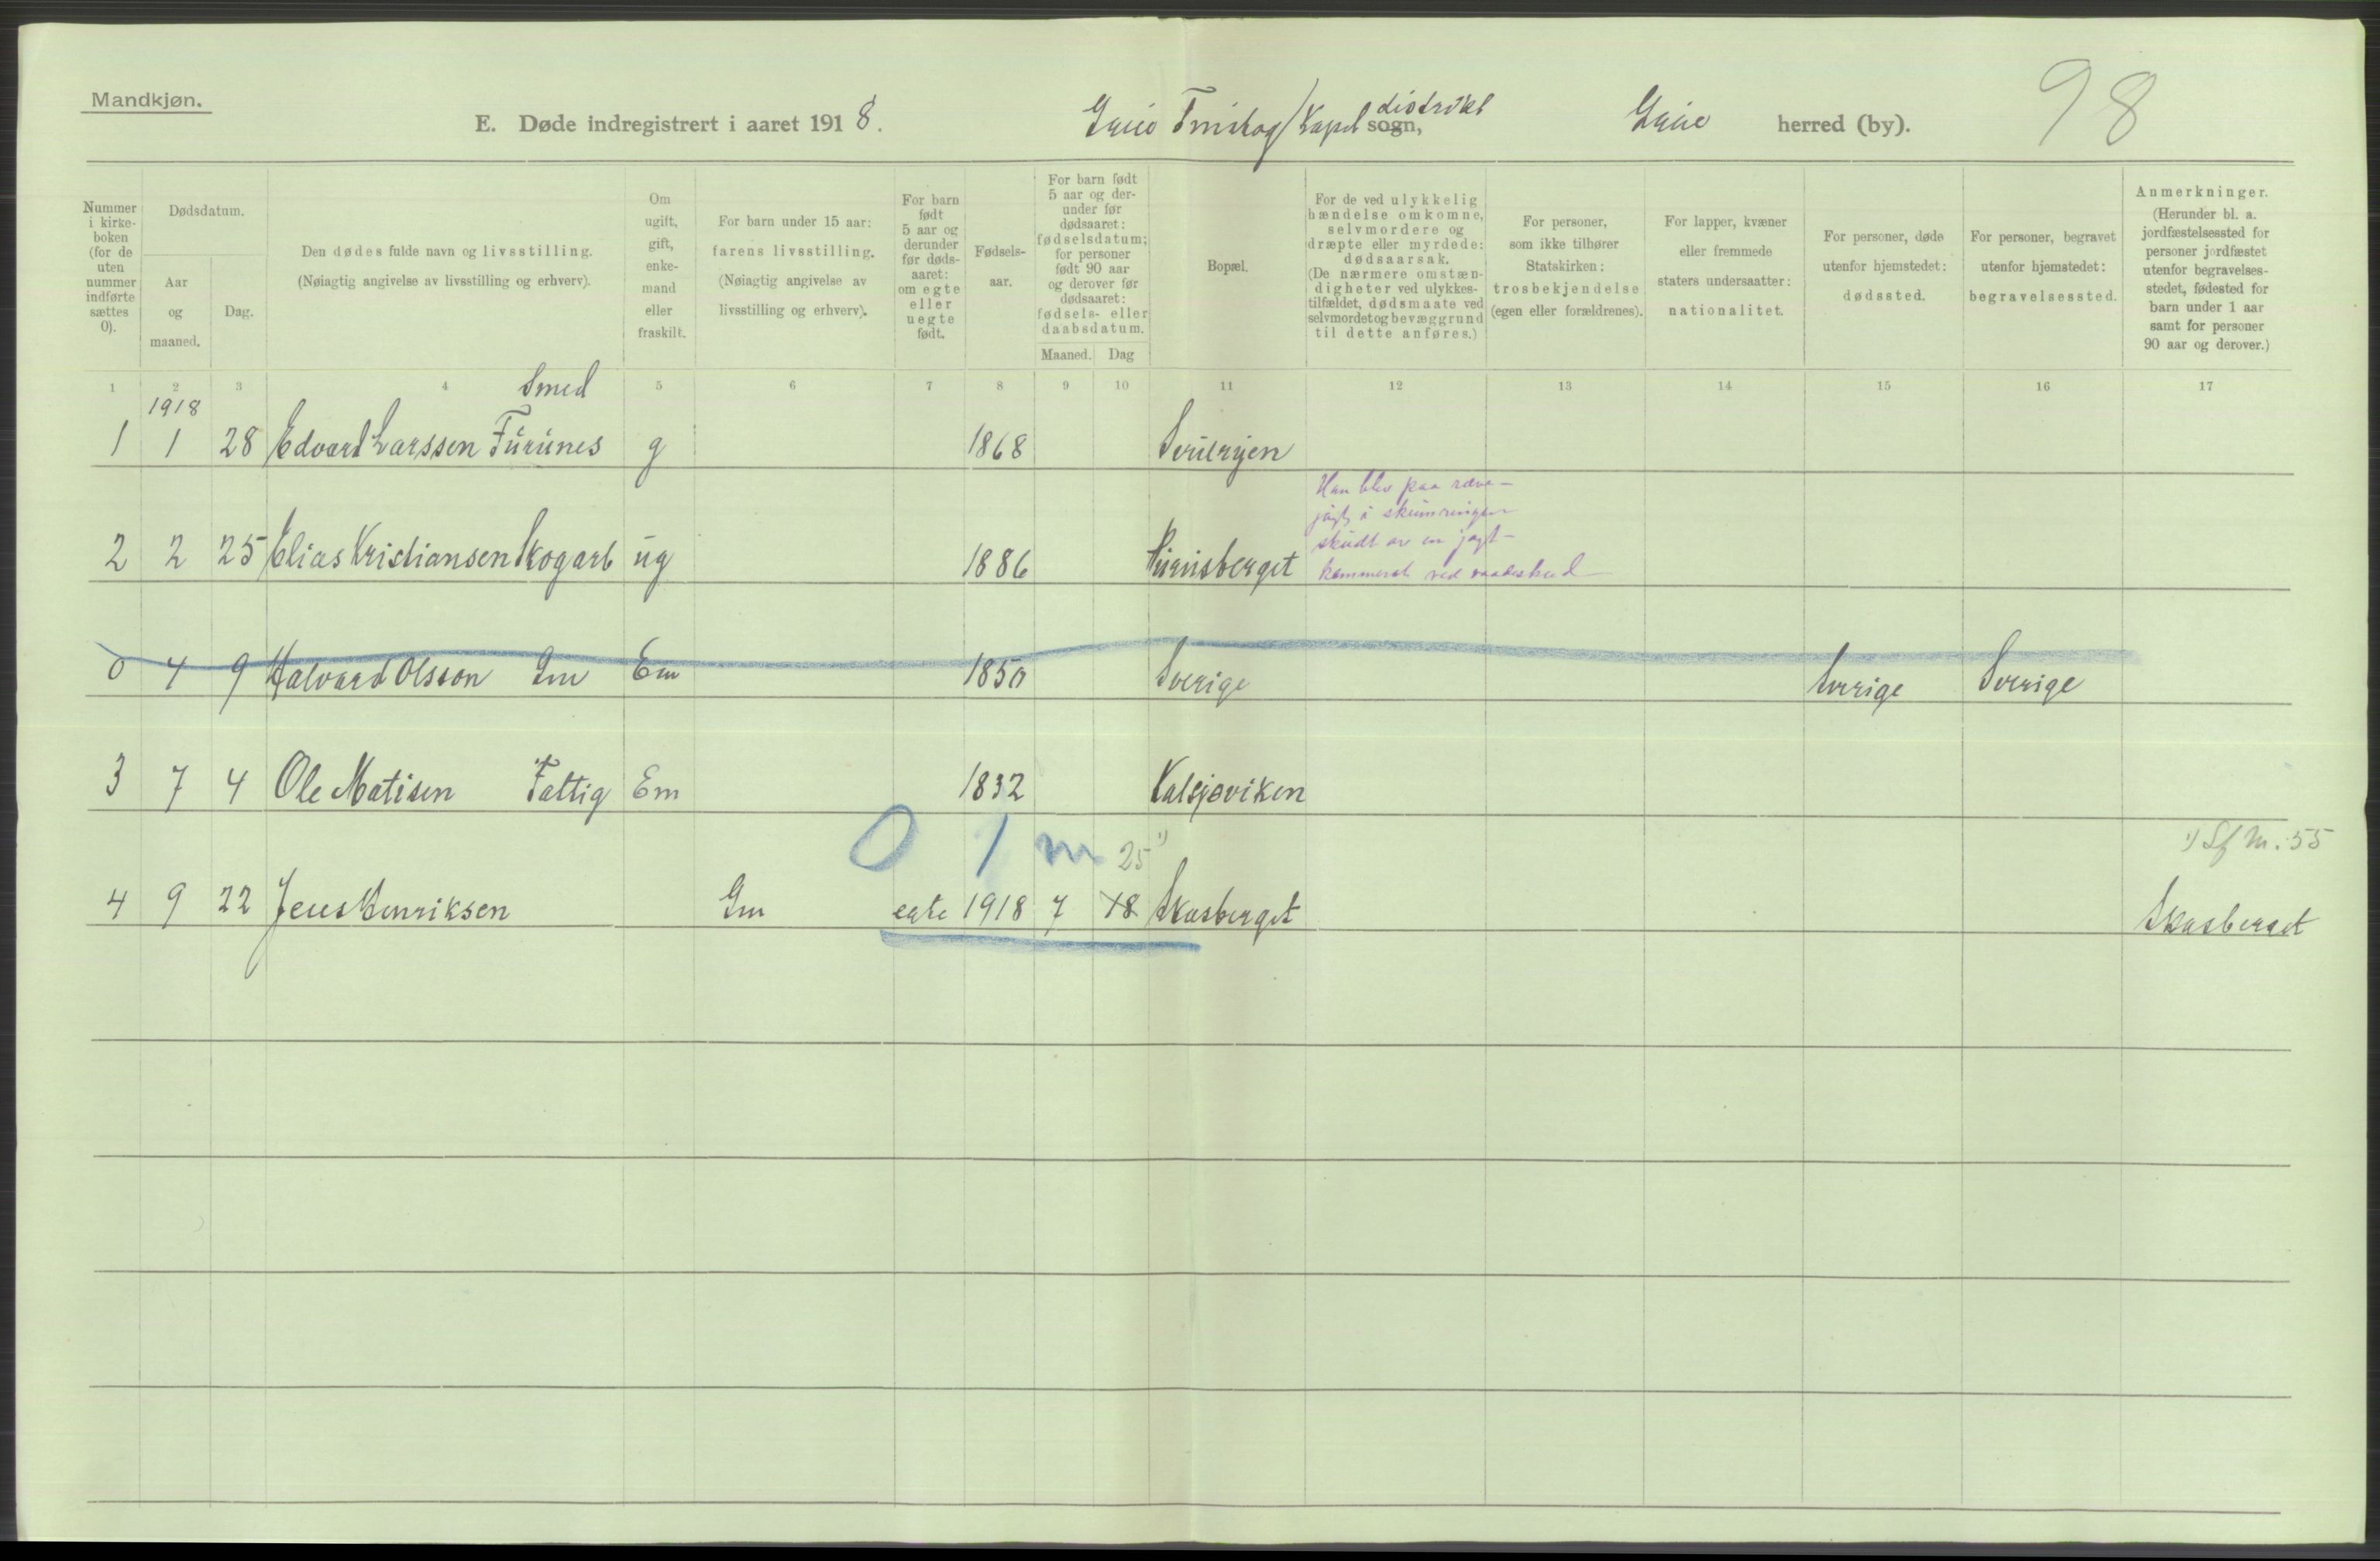 Mandkjøn.
E. Døde indregistrert i aaret 1918. Grue Finskog Kapel distrikt sogn, Grue herred (by). 98
Nummer i kirkeboken (for de uten nummer indførte sættes 0).
Dødsdatum.
Aar og maaned.
Dag.
Den dødes fulde navn og livsstilling.
(Nøiagtig angivelse av livsstilling og erhverv).
Om ugift, gift, enkemand eller fraskilt.
For barn under 15 aar: farens livsstilling.
(Nøiagtig angivelse av livsstilling og erhverv).
For barn født 5 aar og derunder før dødsaaret: om egte eller uegte født.
Fødselsaar.
For barn født 5 aar og derunder før dødsaaret: fødselsdatum; for personer født 90 aar og derover før dødsaaret: fødsels- eller daabsdatum.
Maaned. Dag
Bopæl.
For de ved ulykkelig hændelse omkomne, selvmordere og dræpte eller myrdede: dødsaarsak.
(De nærmere omstændigheter ved ulykkestilfældet, dødsmaate ved selvmordet og bevæggrund til dette anføres.)
For personer, som ikke tilhører Statskirken: trosbekjendelse (egen eller forældrenes).
For lapper, kvæner eller fremmede staters undersaatter: nationalitet.
For personer, døde utenfor hjemstedet: dødssted.
For personer, begravet utenfor hjemstedet: begravelsessted.
Anmerkninger.
(Herunder bl. a. jordfæstelsessted for personer jordfæstet utenfor begravelsesstedet, fødested for barn under 1 aar samt for personer 90 aar og derover.)
1 2 3 4 5 6 7 8 9 10 11 12 13 14 15 16 17
1918 Smed
1 1 28 Edvard Larssen Furunes g 1868
Han blev paa ræve-
jagt i skumringen
skudt av en jagt-
kammerat ved vaadeskud
2 2 25 Elias Kristiansen Skogarb ug 1886
0 4 9 Halvard Olsson Gm Em 1850 Sverige Sverige Sverige
3 7 4 Ole Matisen Fattig Em 1832 Kalsjøviken
0 1 m 25 1) 1) Sf M. 55
4 9 22 Jens Henriksen Gm egte 1918 7 18 Skasberget Skasberget